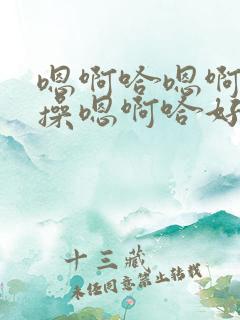 嗯啊哈嗯啊
操嗯啊哈好
十三藏
未经同意禁止转载